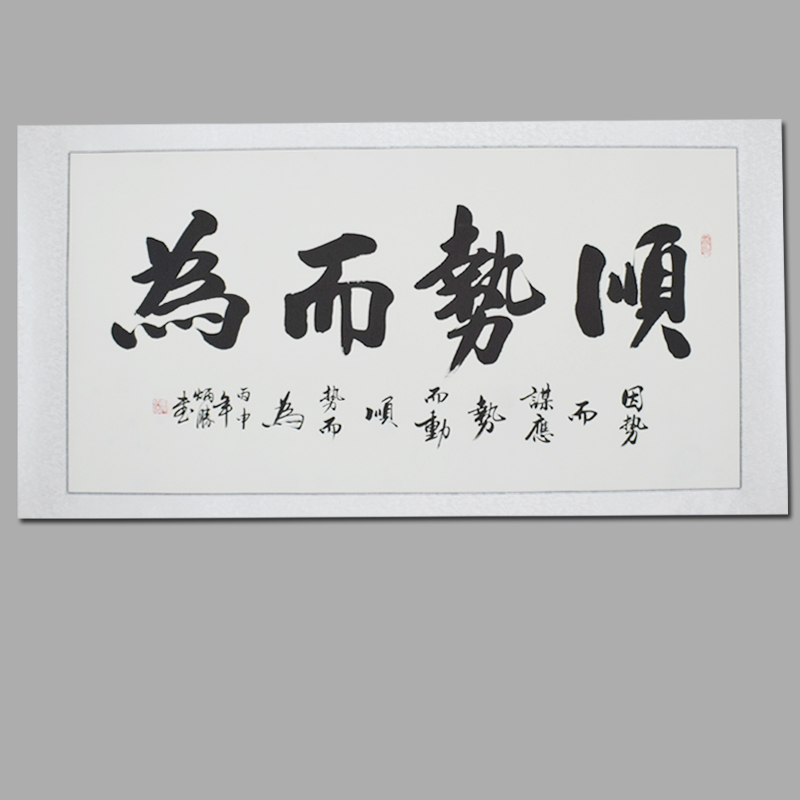 順勢而為
因勢而謀應勢而動順勢而為
丙申年炳勝書